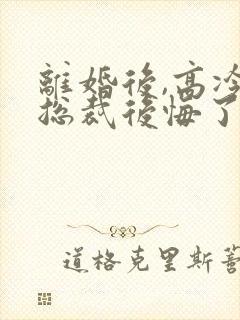 離婚後,高冷
总裁後悔了
道格克里斯